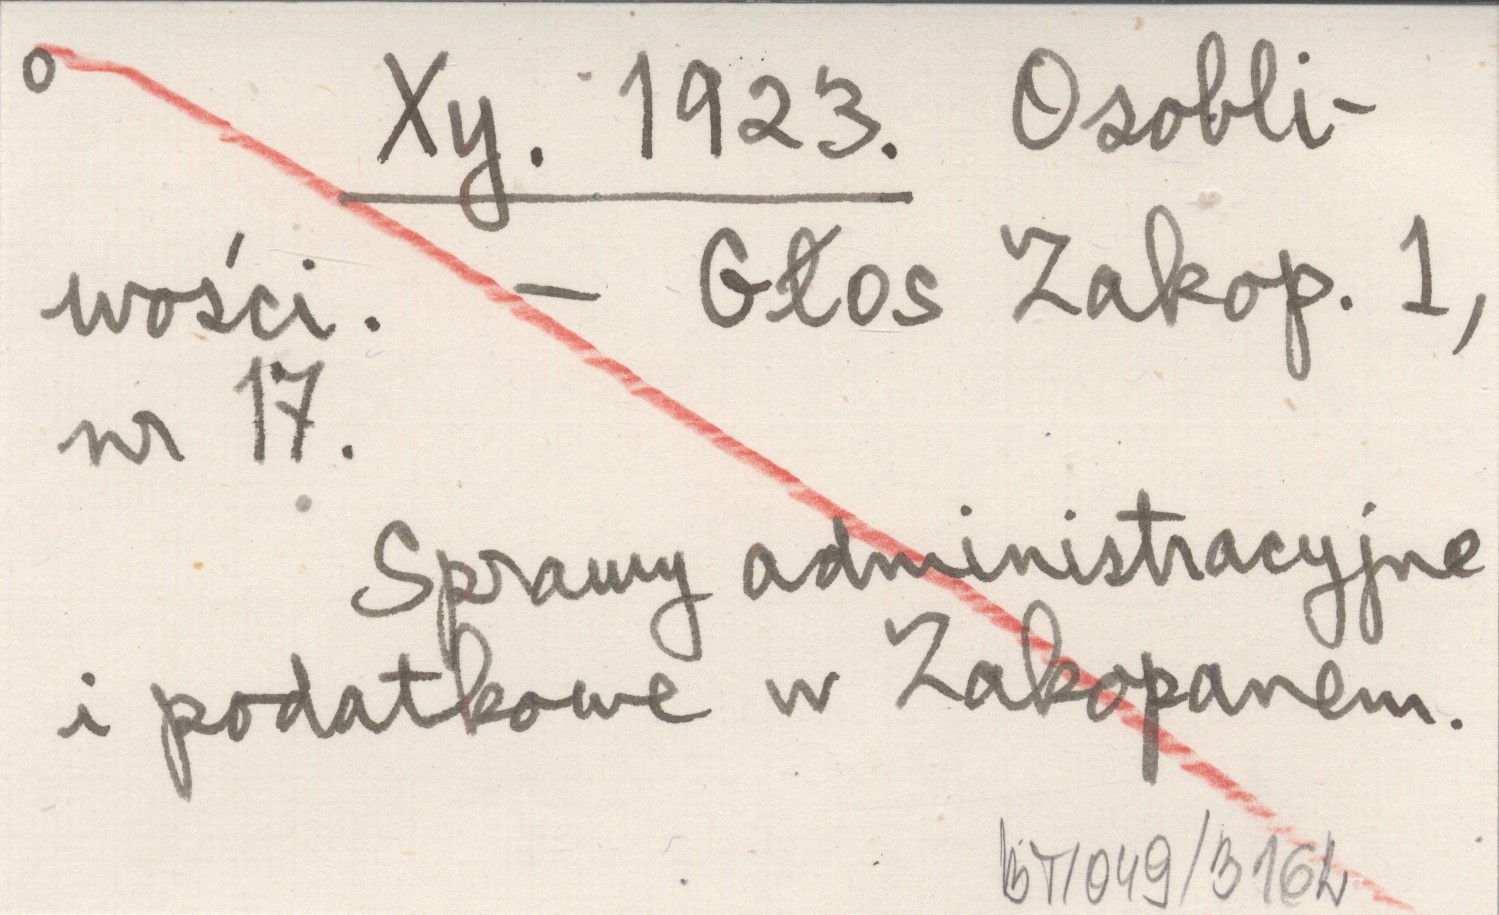 o Xy. 1923. Osobli-
wości. — Głos Zakop. 1,
nr 17.
Sprawy administracyjne
i podatkowe w Zakopanem.